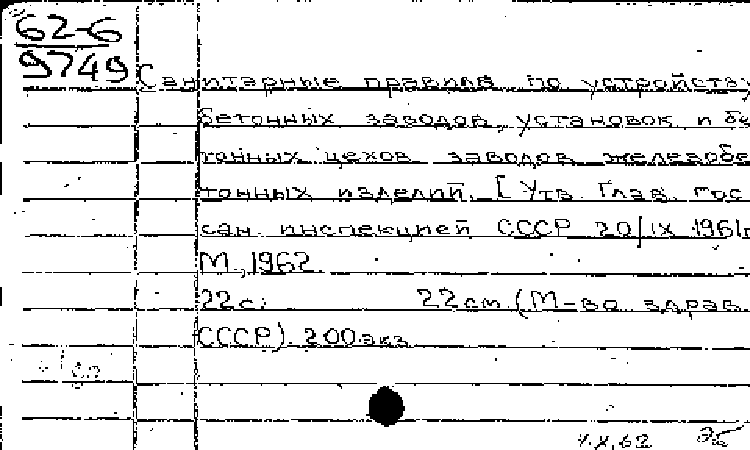 62-6
9749
Санитарные правила по устройству
бетонных заводов, установок и бе
тонных цехов заводов железобе
тонных изделий. [Утв. Глав. гос.
сан. инспекцией СССР 20/IX 1961г
М., 1962.
22с; 22см (М-во здрав.
СССР). 200экз
4.X.62